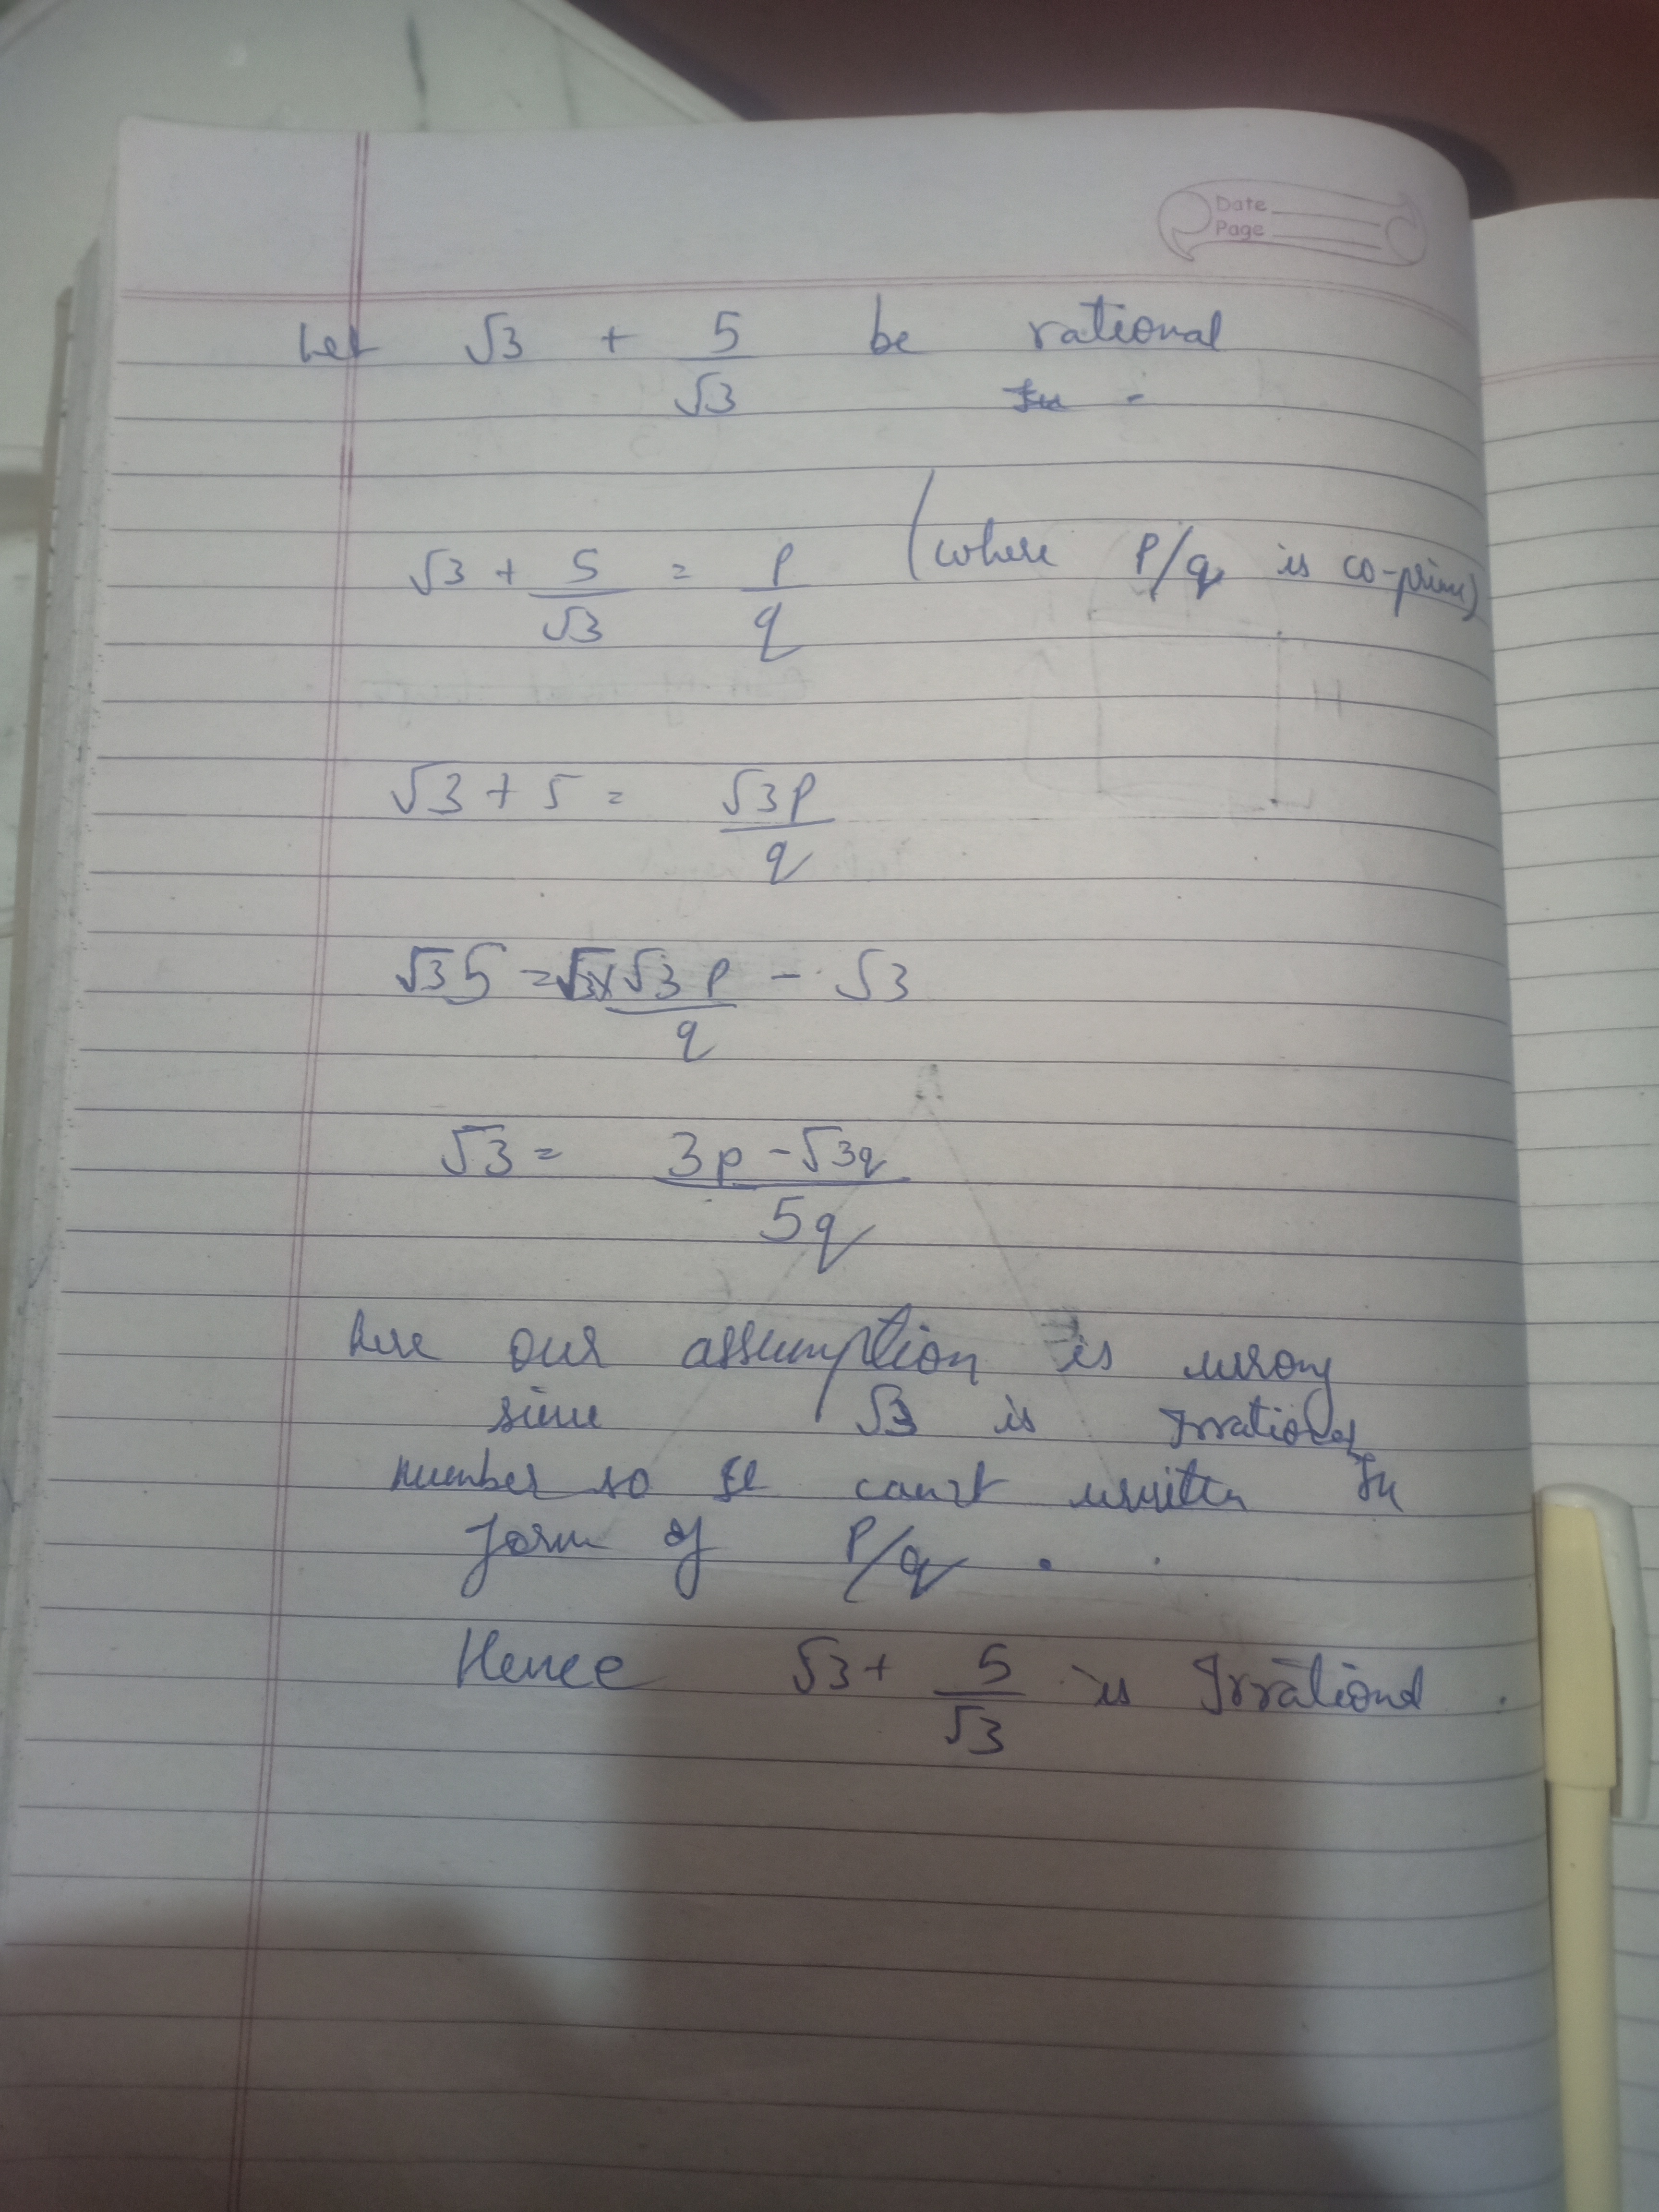 Date
Page
Let √3 + 5/√3 be rational
√3 + 5/√3 = p/q (where P/q is co-prime)
√3 + 5 = √3p/q
√3 5 = √3 x √3 p/q - √3
√3 = 3p - √3q/5q
our assumption is wrong
√3 is Irrational
number so can't written In
form of P/q .
Hence √3 + 5/√3 is Irrational .